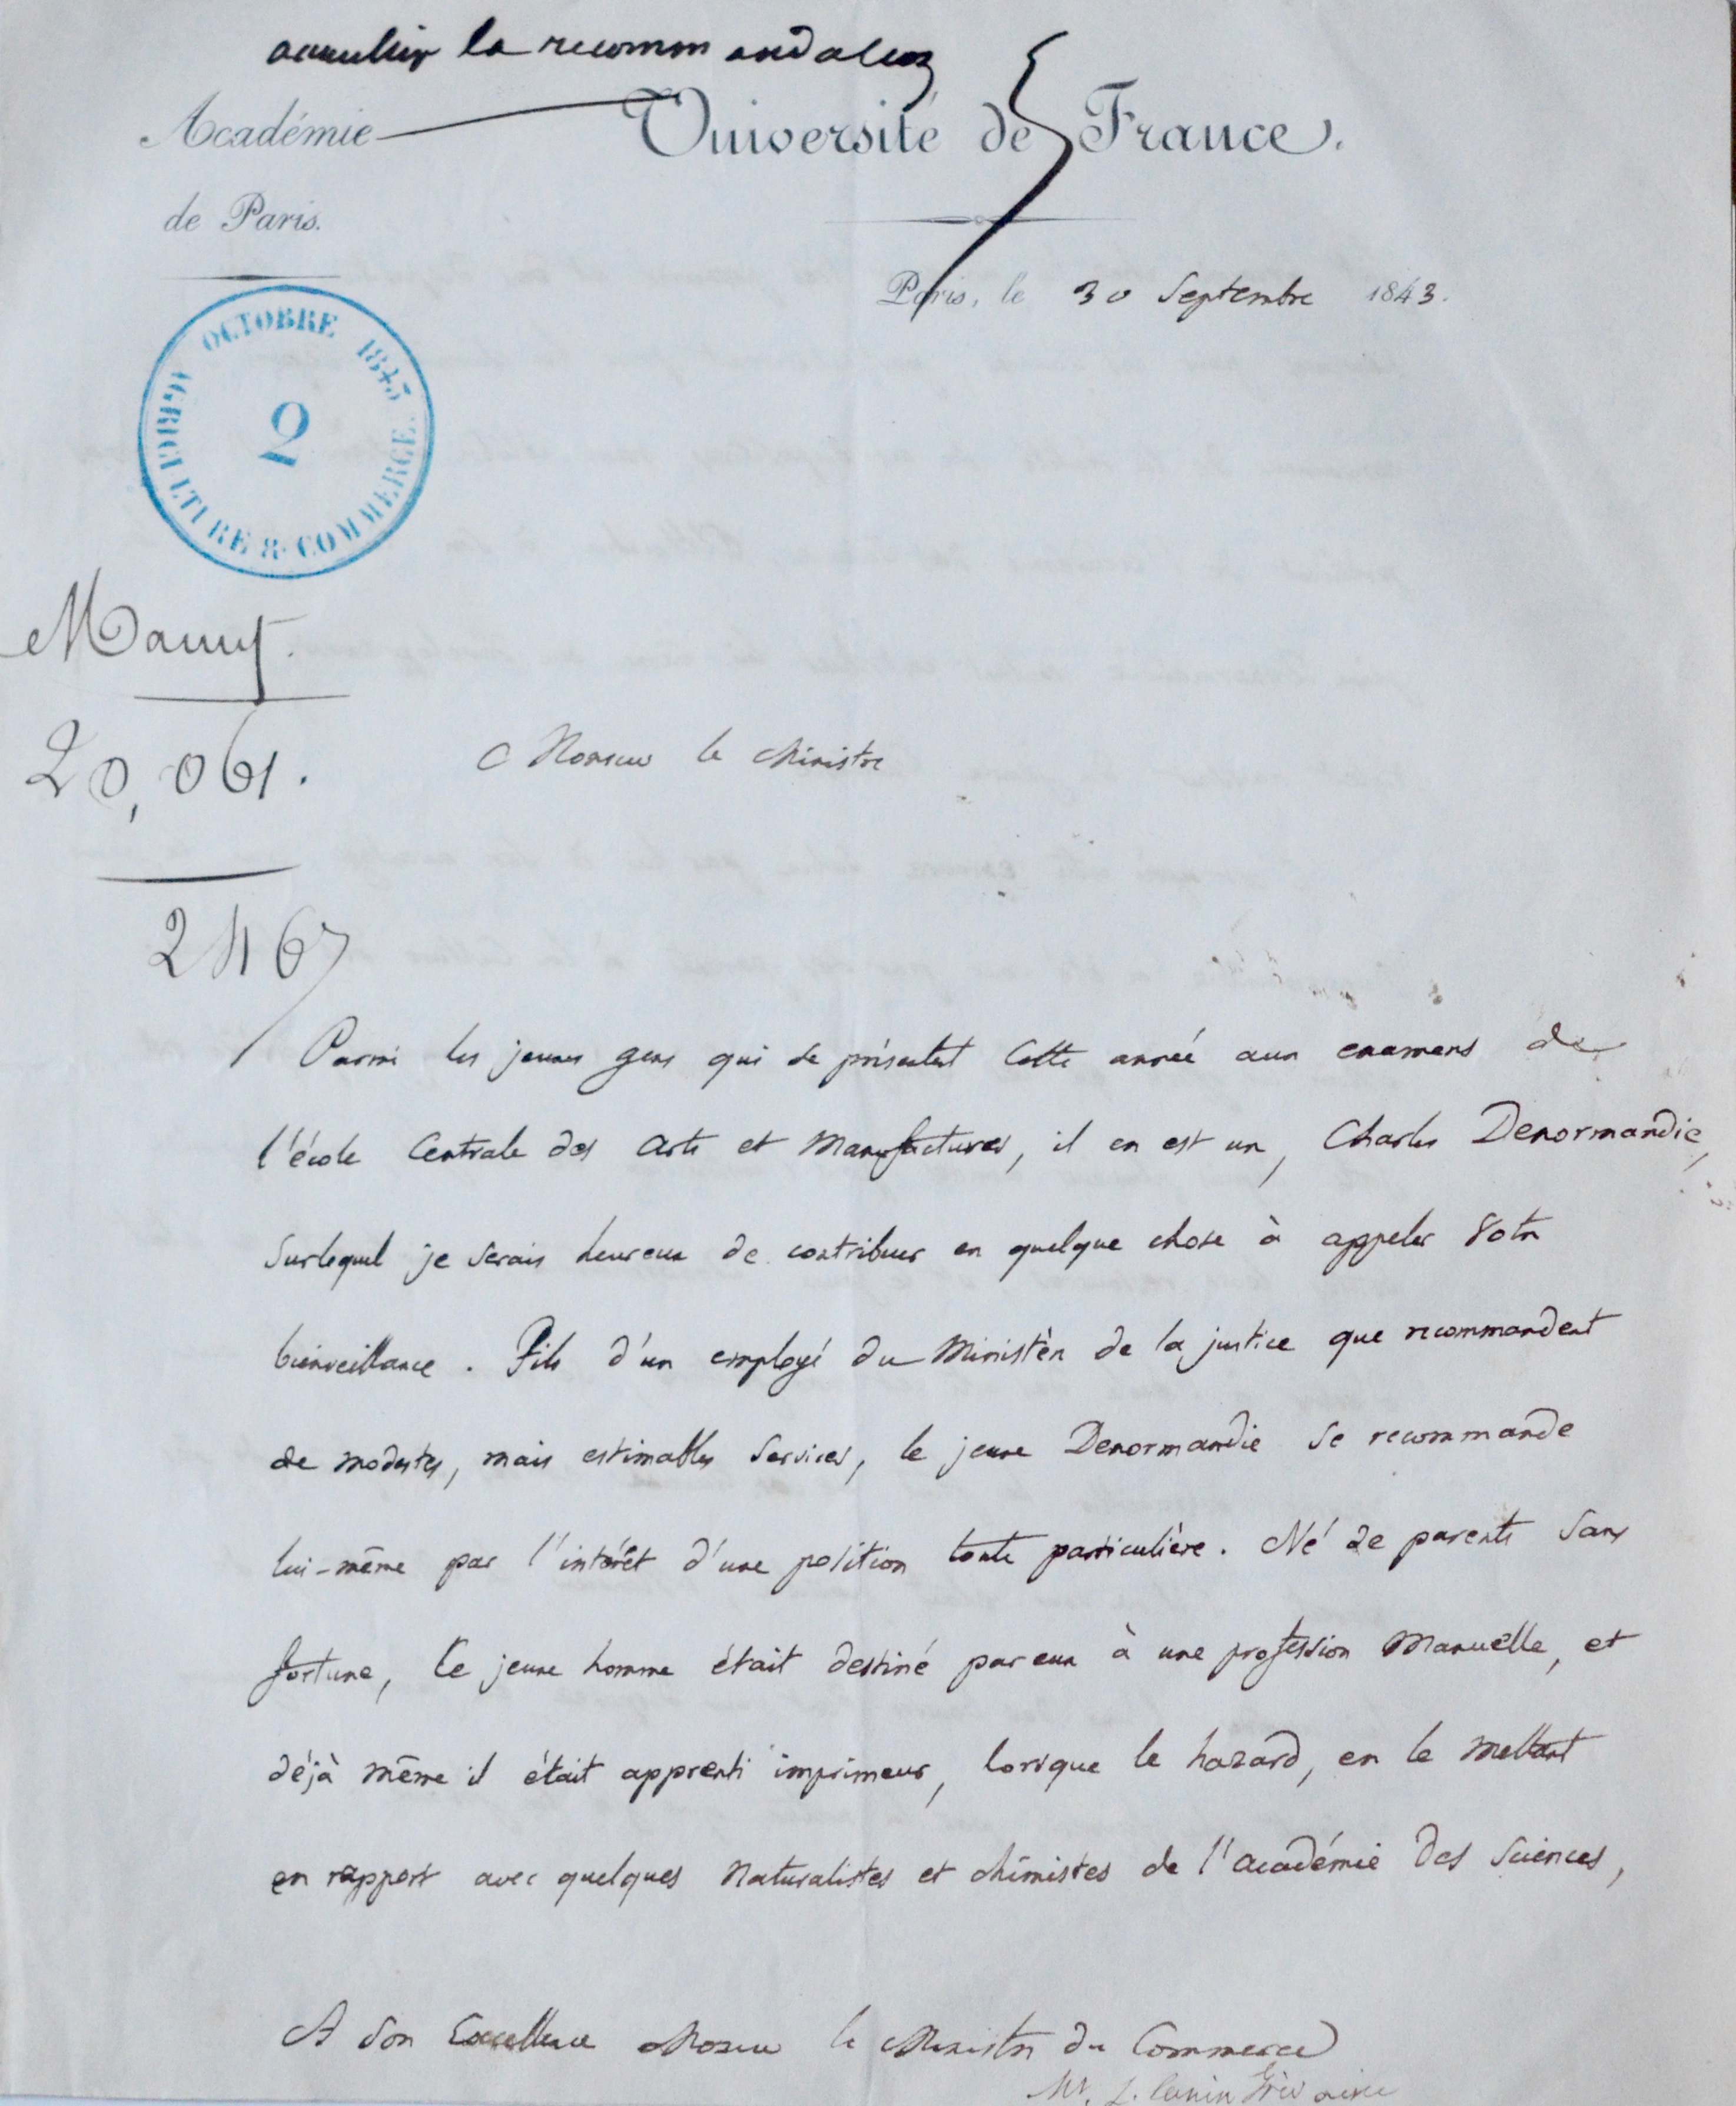 accueillir la recommandation
Académie
de Paris.
Université de France.
Paris, le 30 Septembre 1843.
AGRICULTURE & COMMERCE.
OCTOBRE 1843
2
20,061.
2467
Monsieur le Ministre
Parmi les jeunes gens qui se présentent cette année aux examens de
l'école Centrale des arts et Manufactures, il en est un, Charles Denormandie,
sur lequel je serais heureux de contribuer en quelque chose à appeler votre
bienveillance. Fils d'un employé du Ministère de la justice que recommandent
de modestes, mais estimables services, le jeune Denormandie se recommande
lui-même par l'intérêt d'une position toute particulière. Né de parents sans
fortune, ce jeune homme était destiné par eux à une profession Manuelle, et
déjà même il était apprenti imprimeur, lorsque le hazard, en le mettant
en rapport avec quelques Naturalistes et chimistes de l'académie des Sciences,
A Son Excellence Monsieur le Ministre du Commerce